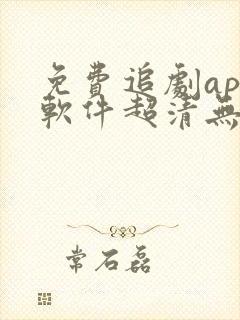 免費追劇ap
軟件超清無
常石磊